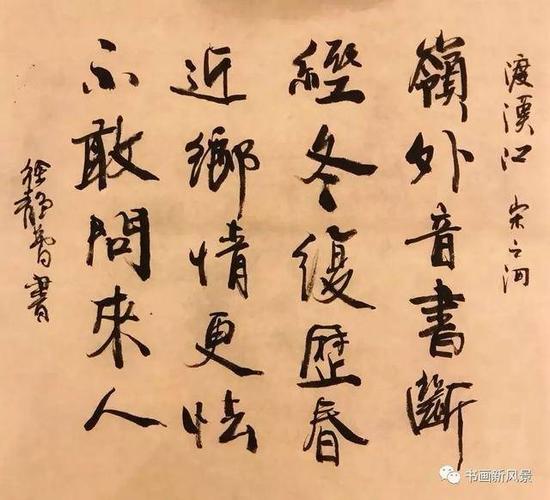 渡漢江 宋之问
嶺外音書斷
經冬復歷春
近鄉情更怯
不敢問來人
徐静書
书画新风景